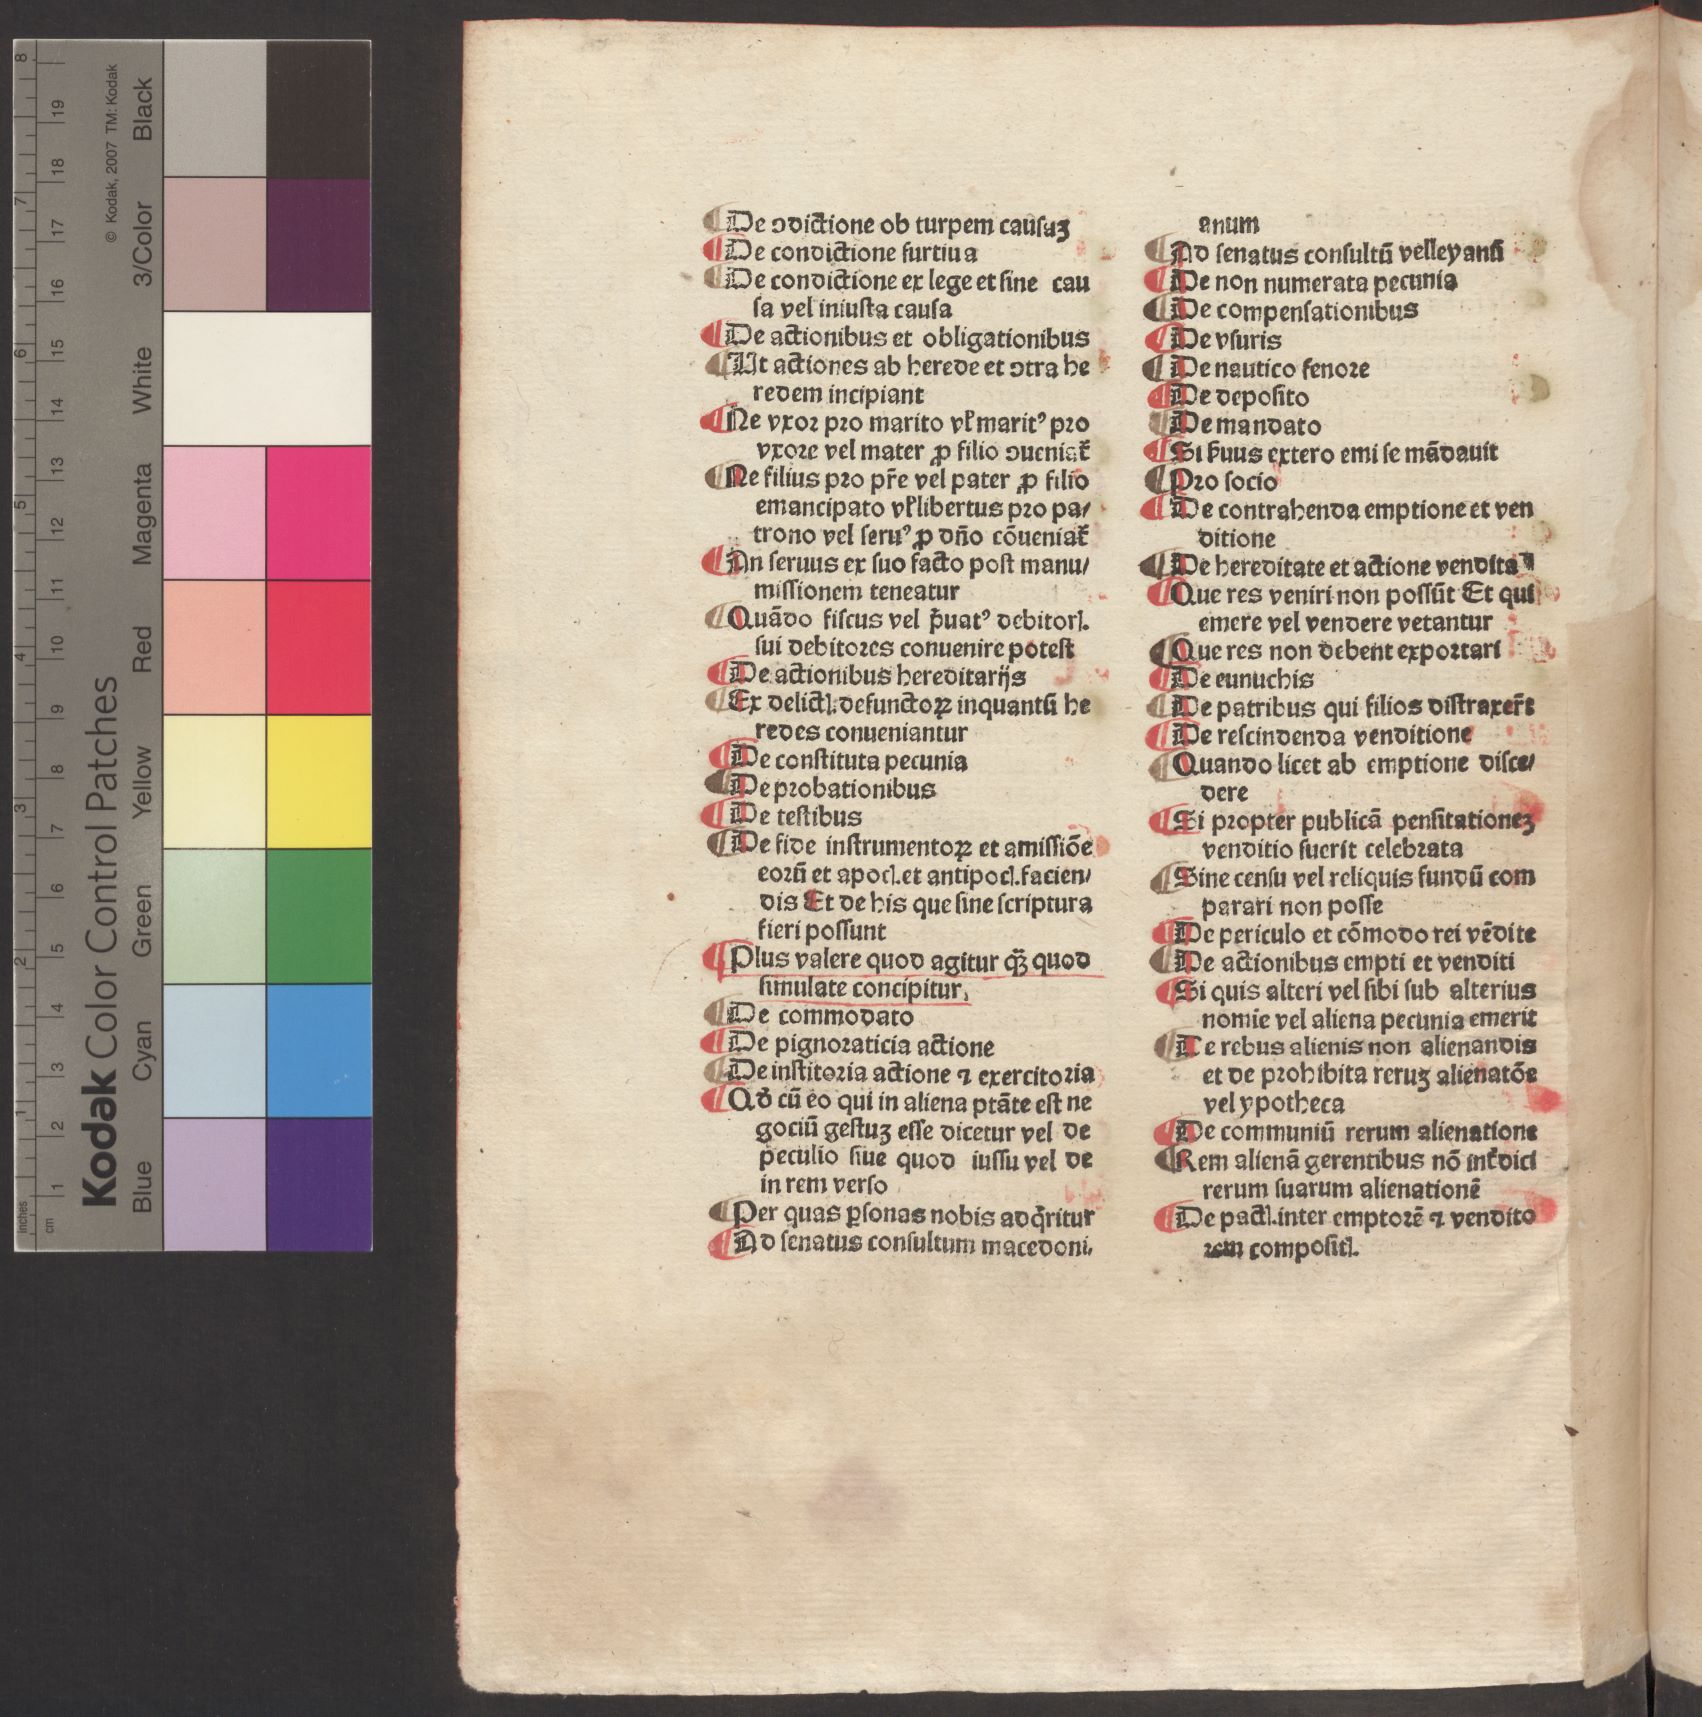 De ↄdictione ob turpem causaꝫ
De condictione furtiua
De condictione ex lege et sine cau
sa vel iniusta causa
De actionibus et obligationibus
Ut actiones ab herede et ↄtra he
redem incipiant
Ne vxor pro marito vl̓ maritꝰ pro
vxore vel mater ꝓ filio ↄueniat̄
Ne filius pro pr̄e vel pater ꝓ filio
emancipato vl̓ libertus pro pa/
trono vel seruꝰ ꝓ dn̄o cōueniat̄
An seruus ex suo facto post manu/
missionem teneatur
Quādo fiscus vel p̄uatꝰ debitorꝭ.
sui debitores conuenire potest
De actionibus hereditarijs
Ex delictꝭ. defunctoꝝ inquantū he
redes conueniantur
De constituta pecunia
De probationibus
De testibus
De fide instrumentoꝝ et amissiōe
eorū et apocꝭ. et antipocꝭ. facien/
dis Et de his que sine scriptura
fieri possunt
Plus valere quod agitur q̄ꝫ quod
simulate concipitur.
De commodato
De pignoraticia actione
De institoria actione ⁊ exercitoria
Qd̓ cū eo qui in aliena ptāte est ne
gociū gestuꝫ esse dicetur vel de
peculio siue quod iussu vel de
in rem verso
Per quas ꝑsonas nobis adq̄ritur
Ad senatus consultum macedoni/
anum
Ad senatus consultū velleyanū
De non numerata pecunia
De compensationibus
De vsuris
De nautico fenore
De deposito
De mandato
Si ẜuus extero emi se mādauit
Pro socio
De contrahenda emptione et ven
ditione
De hereditate et actione vendita
Que res veniri non possūt Et qui
emere vel vendere vetantur
Que res non debent exportari
De eunuchis
De patribus qui filios distraxer̄t
De rescindenda venditione
Quando licet ab emptione disce/
dere
Si propter publicā pensitationeꝫ
venditio fuerit celebrata
Sine censu vel reliquis fundū com
parari non posse
De periculo et cōmodo rei vēdite
De actionibus empti et venditi
Si quis alteri vel sibi sub alterius
nomie vel aliena pecunia emerit
De rebus alienis non alienandis
et de prohibita reruꝫ alienatōe
vel ypotheca
De communiū rerum alienatione
Rem alienā gerentibus nō int̄dici
rerum suarum alienationē
De pactꝭ. inter emptorē ⁊ vendito
rem compositꝭ.
Kodak Color Control Patches
© Kodak, 2007 TM: Kodak
Blue Cyan Green Yellow Red Magenta White 3/Color Black
inches 1 2 3 4 5 6 7 8
cm 1 2 3 4 5 6 7 8 9 10 11 12 13 14 15 16 17 18 19